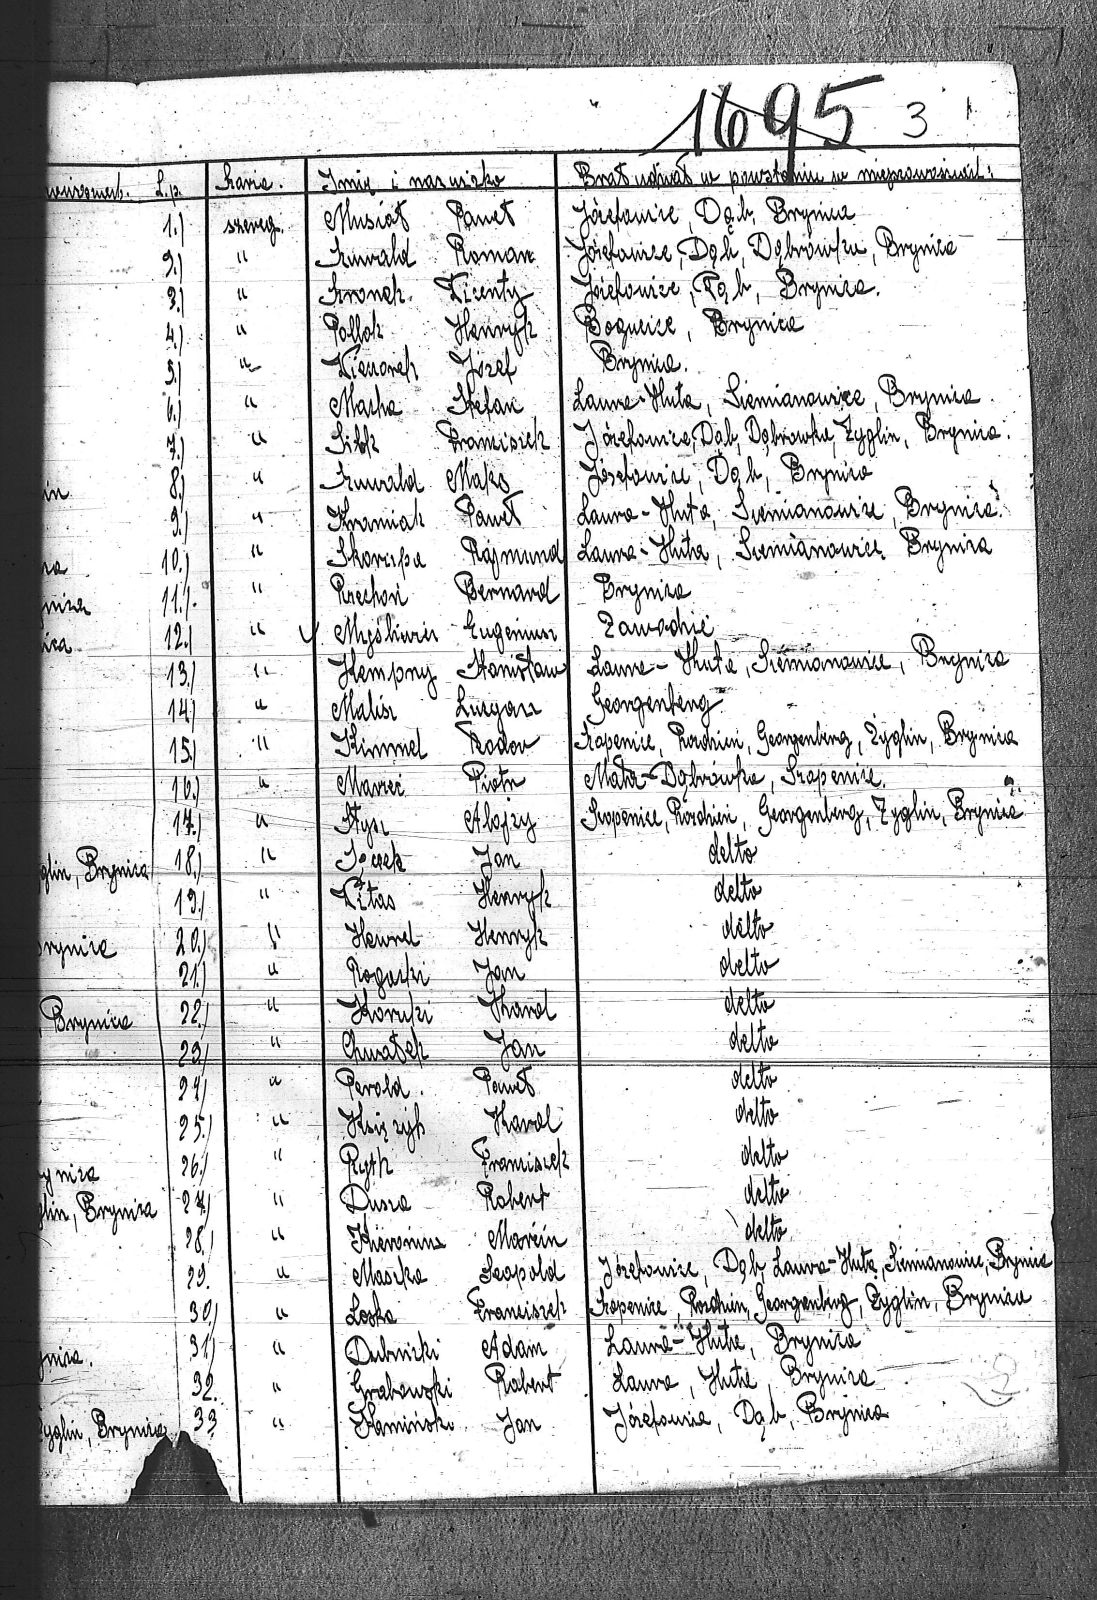 1695 3
L.p. Szarża. Imię i nazwisko Brał udział w powstaniu w miejscowości:
1.) szereg. Musiał Paweł Józefowice, Dąb, Brynica
2.) " Kuwald Roman Józefowice, Dąb, Dąbrówka, Brynica
3.) " Kronek Józefowice, Dąb, Brynica.
4.) " Pollok Henryk Bogucice, Brynica
5.) " Józef Brynica.
6.) " Macha Stefan Laura-Huta, Siemianowice, Brynica.
7.) " Franciszek Józefowice, Dąb, Dąbrówka, Żyglin, Brynica.
8.) " Kuwald Maks Józefowice, Dąb, Brynica
9.) " Paweł Laura-Huta, Siemianowice, Brynica.
10.) " Skorupa Rajmund Laura-Huta, Siemianowice, Brynica
11.) " Piechoń Bernard Brynica
12.) " Myśliwiec Eugeniusz Zawodzie
13.) " Kempny Stanisław Laura-Huta, Siemianowice, Brynica
14.) " Malisz Lucyan Georgenberg
15.) " Kimmel Teodor Szopenice, Rozdzień, Georgenberg, Żyglin, Brynica
16.) " Piotr Mała-Dąbrówka, Szopenice.
17.) " Alojzy Szopenice, Rozdzień, Georgenberg, Żyglin, Brynica
glin, Brynica 18.) " Jan detto
19.) " Litas Henryk detto
Brynica 20.) " Henryk detto
21.) " Rogacki Jan detto
, Brynica 22.) " Karol detto
23.) " Chwałek Jan detto
24.) " Perold. Paweł detto
25.) " Księżyk Karol detto
26.) " Rytk Franciszek detto
glin, Brynica 27.) " Dusza Robert detto
28.) " Marcin detto
29. " Maszka Leopold Józefowice, Dąb, Laura-Huta, Siemianowice, Brynica
30.) " Loska Franciszek Szopenice, Rozdzień, Georgenberg, Żyglin, Brynica
31.) " Dubiński Adam Laura-Huta, Brynica
32. " Grabowski Robert Laura, Huta, Brynica
Żyglin, Brynica 33. " Kamiński Jan Józefowice, Dąb, Brynica